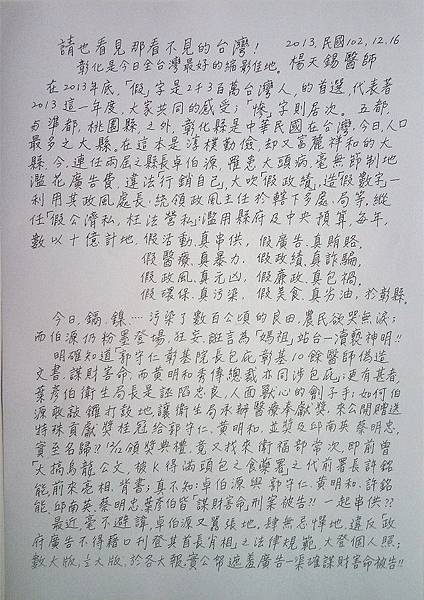 請也看見那看不見的台灣! 2013.民國102.12.16
彰化是今日全台灣最好的縮影佳地。 楊天錫醫師
在2013年底,「假」字是2千3百萬台灣人,的首選,代表著
2013這一年度,大家共同的感受;「慘」字則居次。 五都,
与準都,桃園縣,之外,彰化縣是中華民國在台灣,今日,人口
最多之大縣,在這本是淳樸勤儉,却又富麗祥和的大
縣,今,連任兩屆之縣長卓伯源,罹患大頭病,毫無節制地
濫花廣告費,違法「行銷自己」,大吹「假政績」,造「假數字」—
利用其政風處長,統領政風主任於轄下多處、局等,縱
任「假公濟私,枉法營私」;濫用縣府及中央預算,每年,
數以十億計地,假活動,真串供, 假廣告,真賄賂,
假醫療,真暴力, 假政績,真詐騙,
假政風,真元凶, 假廉政,真包禍,
假環保,真污染, 假美食,真劣油,於彰縣。
今日,鎘、鎳……污染了數百公頃的良田,農民欲哭無淚;
而伯源仍粉墨登場,狂妄,誑言為「媽祖」站台—瀆褻神明!!
明確知道「郭守仁彰基院長包庇彰基10餘醫師偽造
文書,謀財害命,而黃明和秀傳總裁亦同涉包庇;更有甚者,
葉彥伯衛生局長是誣陷忠良,人面獸心的劊子手;如何伯
源敢敲鑼打鼓地讓衛生局承辦醫療奉獻獎,來公開贈送
特殊貢獻獎桂冠給郭守仁、黃明和,並獎及邱南英、蔡明忠,
實至名歸?? 12/12頒獎典禮,竟又找來衛福部常次,即前曾
大搞烏龍公文,被K得滿頭包之食藥署之代前署長許銘
能,前來亮相,背書;真不知:卓伯源與郭守仁、黃明和、許銘
能、邱南英、蔡明忠、葉彥伯皆「謀財害命」刑案被告!! 一起串供??
最近,毫不避諱,卓伯源又囂張地,肆無忌憚地,違反「政
府廣告不得藉口刊登其首長肖相」之法律規範,大登個人照;
數大版,全大版,於各大報;實公帑遮羞廣告—渠確謀財害命被告!!